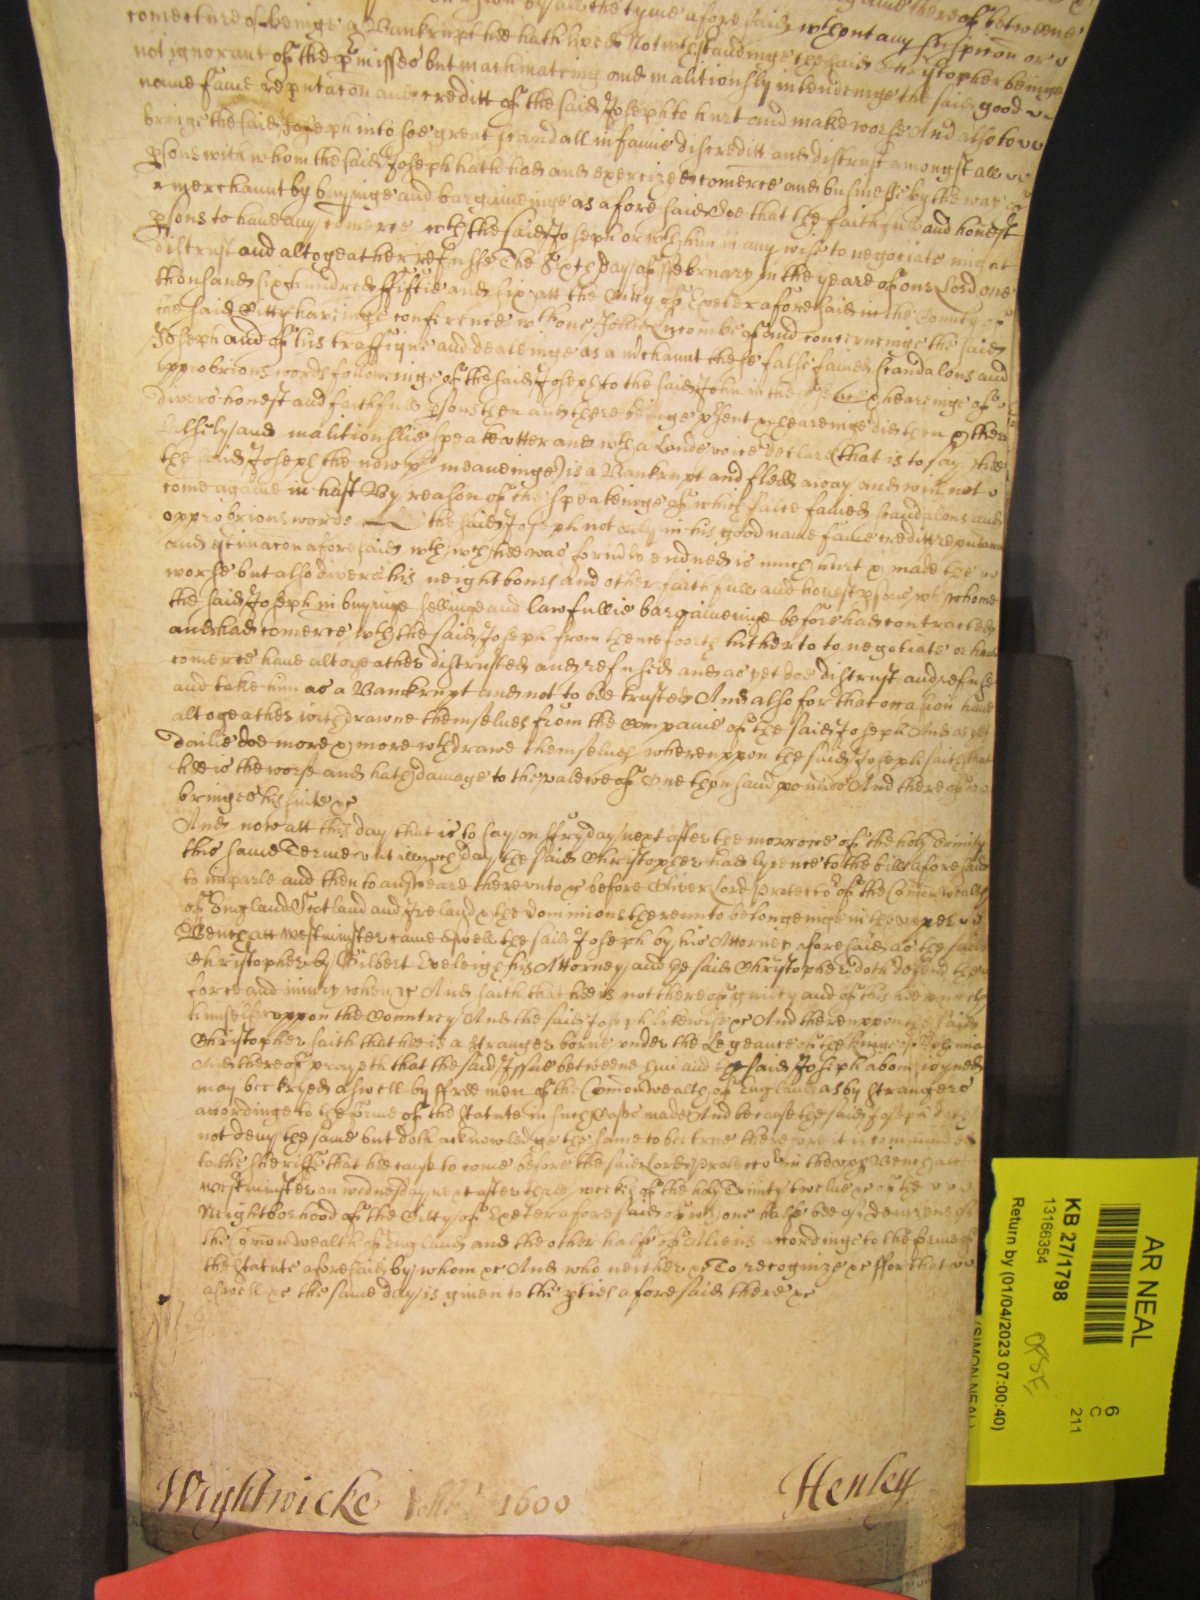 comecture of beinge a Banckrupt hee hath lived Notwthstandinge the said Christopher beinge
not ignorant of the pmisses but machinateing and malitiously intendeinge the said good
name fame reputacon and creditt of the said Joseph to hurt and make worse And also to
bringe the said Joseph into soe great scandall infamie discreditt and distrust amongst all
psons with whom the said Joseph hath had and exercized comerce and businesse by the way of
a merchaunt by buyinge and bargaineinge as aforesaid Soe that the faithfull and honest
psons to have any comerce wth the said Joseph or wth him in any wise to negotiate might
distrust and altogeather refusse The Sixth day of February in the yeare of our Lord one
thousand six hundred Fiftie and six att the Citty of Exeter aforesaid in the County of
the said Citty haveinge conference wth one John Lycombe of and concerneinge the said
Joseph and of his traffique and dealeinge as a mchaunt these false fained scandalous and
opprobrious words followeinge of the said Joseph to the said John in the psence & heareinge of
divers honest and faithfull psons then and there beinge psent & heareinge did then & there
falsely and malitiouslie speake utter and wth a loude voice declare (that is to say) Hee
the said Joseph the now pl meaneinge) is a Banckrupt and fledd away and will not
come againe in hast By reason of the speakeinge of which false fained scandalous and
opprobrious words the said Joseph not only in his good name fame creditt reputacon
and estimacon aforesaid wth wch hee was formerly endued is much hurt & made the
worse but also divers his neighbours and other faithfull and honest psons wth whome
the said Joseph in buyinge sellinge and lawfullie bargaineinge before had contracted
and had comerce wth the said Joseph from thenceforth hitherto to negotiate or have
comerce have altogeather distrusted and refused and as yet doe distrust and refuse
and take him as a Banckrupt and not to bee trusted And also for that occasion have
altogeather withdrawne themselves from the Companie of the said Joseph And as yet
dailie doe more & more wthdrawe themselves whereuppon the said Joseph saith that
hee is the worse and hath damage to the valewe of One thousand pounds And thereof
bringes his suite &c
And now att this day that is to say on Fryday next after the morrowe of the holy Trinity
this same Terme untill wch day the said Christopher had lycence to the bill aforesaid
to imparle and then to answeare thereunto &c before Oliver Lord Protector of the Comonwealth
of England Scotland and Ireland & the dominions thereunto belongeinge in the upper
Bench att Westminster came aswell the said Joseph by his Attorney aforesaid as the said
Christopher by Gilbert Eveleigh his Attorney and the said Christopher doth defend the
force and iniury when &c And saith that hee is not thereof guilty and of this hee putteth
himselfe uppon the Countrey And the said Joseph likewise &c And thereuppon the said
Christopher saith that hee is a stranger borne under the Legeance of the Kinge of
And thereof prayeth that the said Issue betweene him and the said Joseph above ioyned
may bee tryed aswell by ffree men of the Comonwealth of England as by Strangers
accordinge to the forme of the Statute in such Case made And because the said Joseph doth
not deny the same but doth acknowledge the same to bee true therefore it is comanded
to the Sheriffe that hee cause to come before the said Lord Protector in the upp Bench att
Westminster on Wednesday next after three weekes of the holy Trinity twelve &c of the
Neighborhood of the Citty of Exeter aforesaid of wch one halfe bee of denizens of
the Comonwealth of England and the other halfe of Aliens accordinge to the forme of
the Statute aforesaid by whom &c And who neither &c To recognize &c fforthat
aswell &c the same day is given to the pties aforesaid there &c
Wightwicke 1600 Henley
AR NEAL
KB 27/1798
13166354
Return by (01/04/2023 07:00:40)
6
C
211
(SIMON NEAL)